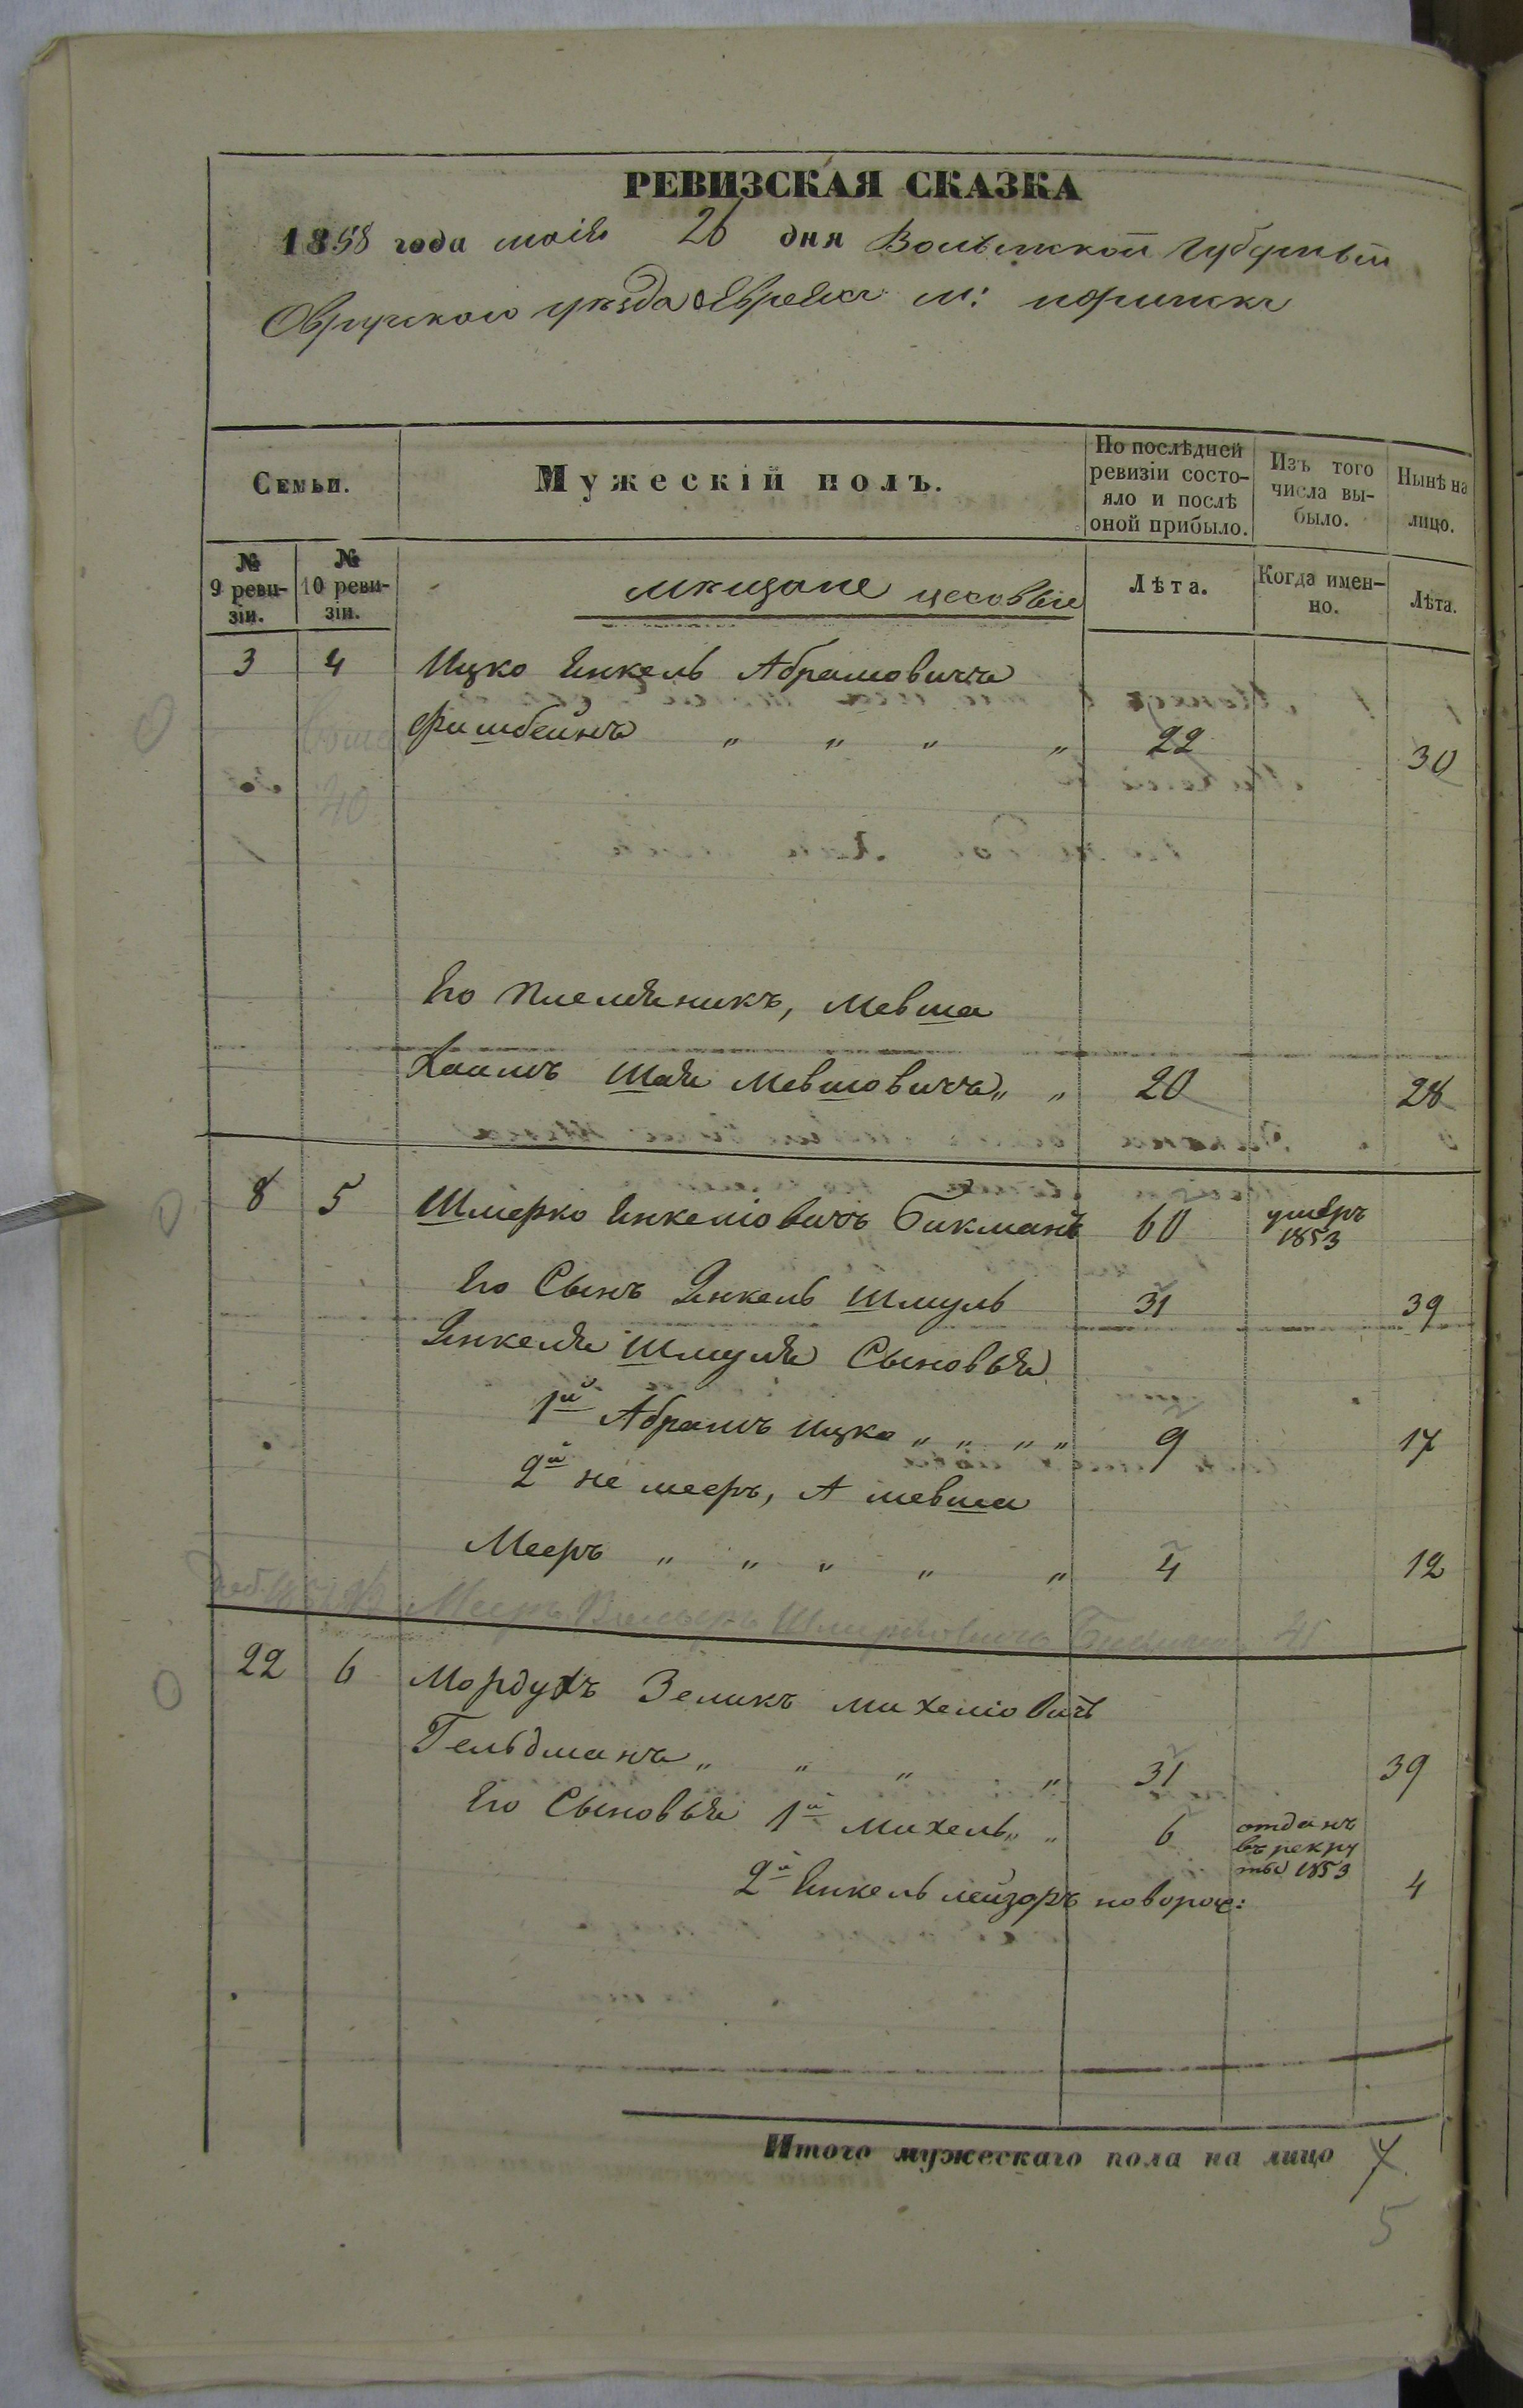 РЕВИЗСКАЯ СКАЗКА
1858 года маія 26 дня Волынской губерніи
Овручского уѣзда Евреевъ м: Норинска
Семьи.
Мужескій полъ.
По послѣдней ревизіи состо-
яло и послѣ
оной прибыло.
Изъ того
числа вы-
было.
Нынѣ на
лицо.
№
9 реви-
зіи.
№
10 реви-
зіи.
мѣщане цеховые
Лѣта.
Когда имен-
но.
Лѣта.
3 4 Ицко Енкель Абрамовичъ
Фишбейнъ " " " " 22 30
40
Его племяникъ, Мевша
Хаимъ Шая Мевшовичъ " " 20 28
8 5 Шмерко Енкеліовичъ Бикманъ 60 умеръ
1853
Его Сынъ Янкель Шмуль 31 39
Янкеля Шмуля Сыновья
1й Абрамъ Ицко " " " " 9 17
2й не мееръ, А мевша
Мееръ " " " " " 4 12
Мееръ Шмерковичъ Бикманъ
22 6 Мордухъ Зеликъ михеліовичъ
Гельдманъ " " " " 31 39
Его Сыновья 1й михель " " 6 отданъ
въ рекру
ты 1853
2й Енкель лейзоръ новорож: 4
Итого мужескаго пола на лицо 7
5